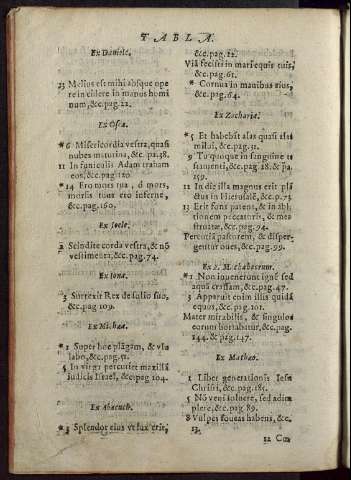 TABLA.
Ex Daniele.
13 Melius est mihi absque ope
re incidere in manus homi
num, &c. pag. 22.
Ex Osea.
*6 Misericordia vestra, quasi
nubes matutina, &c. pa. 38.
11 In funiculis Adam traham
eos, &c. pag. 120.
*14 Ero mors tua, ô mors,
morsus tuus ero inferne,
&c. pag. 160.
Ex Joele.
2 Scindite corda vestra, & nõ
vestimenta, &c. pag. 74.
Ex Iona.
3 Surrexit Rex de solio suo,
&c. pag 109.
Ex Michea.
*1 Super hoc plãgam, & vlu
labo, &c. pag. 51.
5 In virga percutiet maxillã
iudicis Israel, &c. pag 104.
Ex Abacuch.
*3 Splendor eius vt lux erit,
&c. pag. 12.
Viã fecisti in mari equis tuis,
&c. pag. 61.
* Cornua in manibus eius,
&c. pag. 64.
Ex Zacharia.
*5 Et habebãt alas quasi alas
milui, &c. pag. 51.
9 Tu quoque in sanguine te
stamenti, &c. pag. 18. & pa.
159.
11 In die illa magnus erit plã
ctus in Hierusalẽ, &c. p. 73
13 Erit fons patens, & in abl
utionem peccatoris, & me
struatæ, &c. pag. 94.
Percutiã pastorem, & disper-
gentur oues, &c. pag. 99.
Ex 2. Machabæorum.
*1 Non inuenerunt ignẽ sed
aquã crassam, &c. pag. 47.
3 Apparuit enim illis quidã
equus, &c. pag. 101.
Mater mirabilis, & singulos
eorum hortabatur, &c. pag.
144. & pag. 147.
Ex Matheo.
1 Liber generationis Iesu
Christi, &c. pag. 185.
5 Nõ veni soluere, sed adim
plere, &c. pag 89.
8 Vulpes foueas habent, &c.
13.
12 Cum